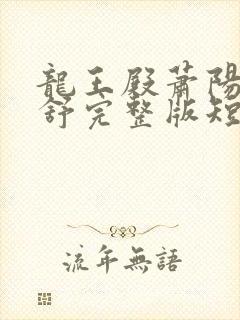 龍王殿蕭陽
舒完整版短
流年無語